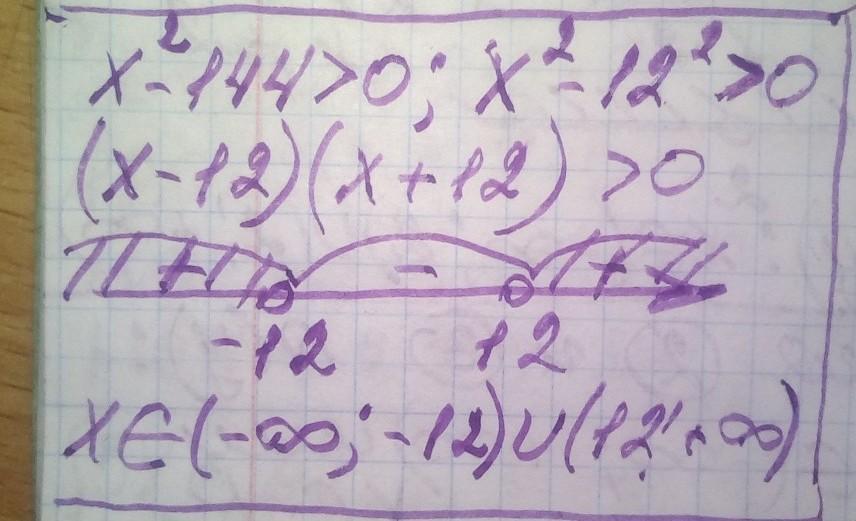 x²-144>0; x²-12²>0
(x-12)(x+12) >0
+ - +
-12 12
x∈(-∞; -12)∪(12; +∞)